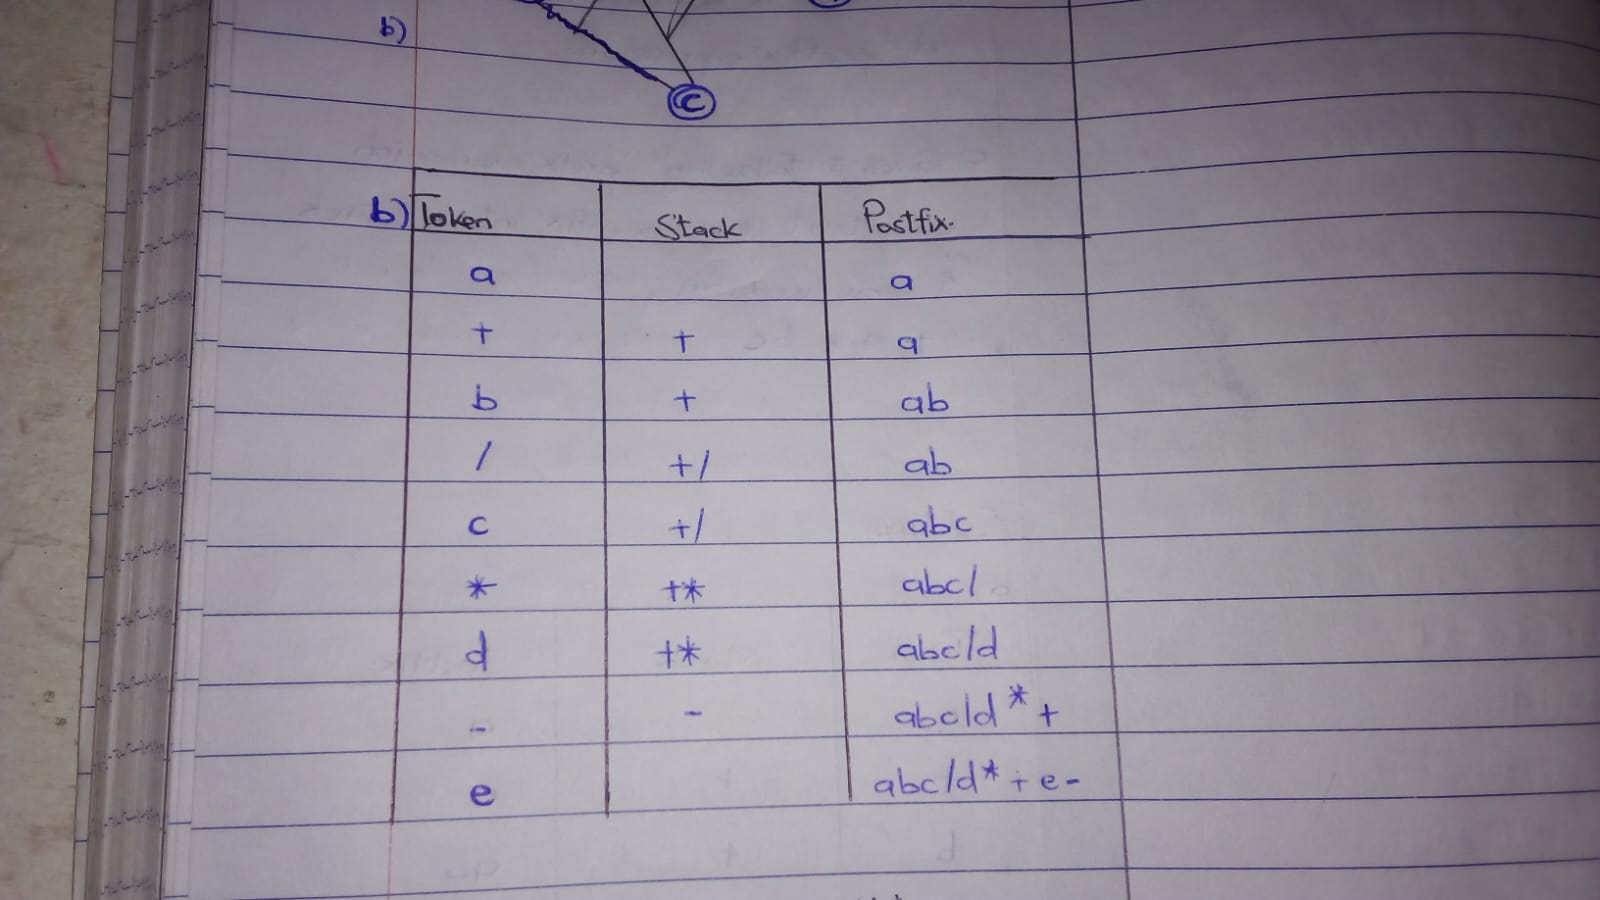 b)
C
b) Token Stack Postfix.
a a
+ + a
b + ab
/ +/ ab
c +/ abc
* +* abc/
d +* abc/d
- - abc/d*+
e abc/d*+e-